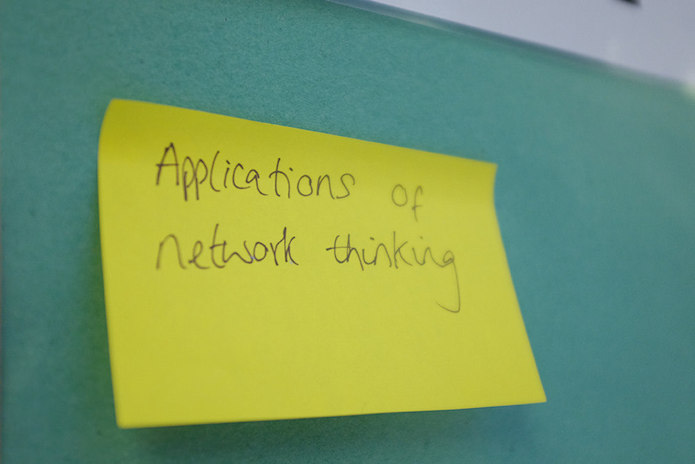 Applications of
network thinking